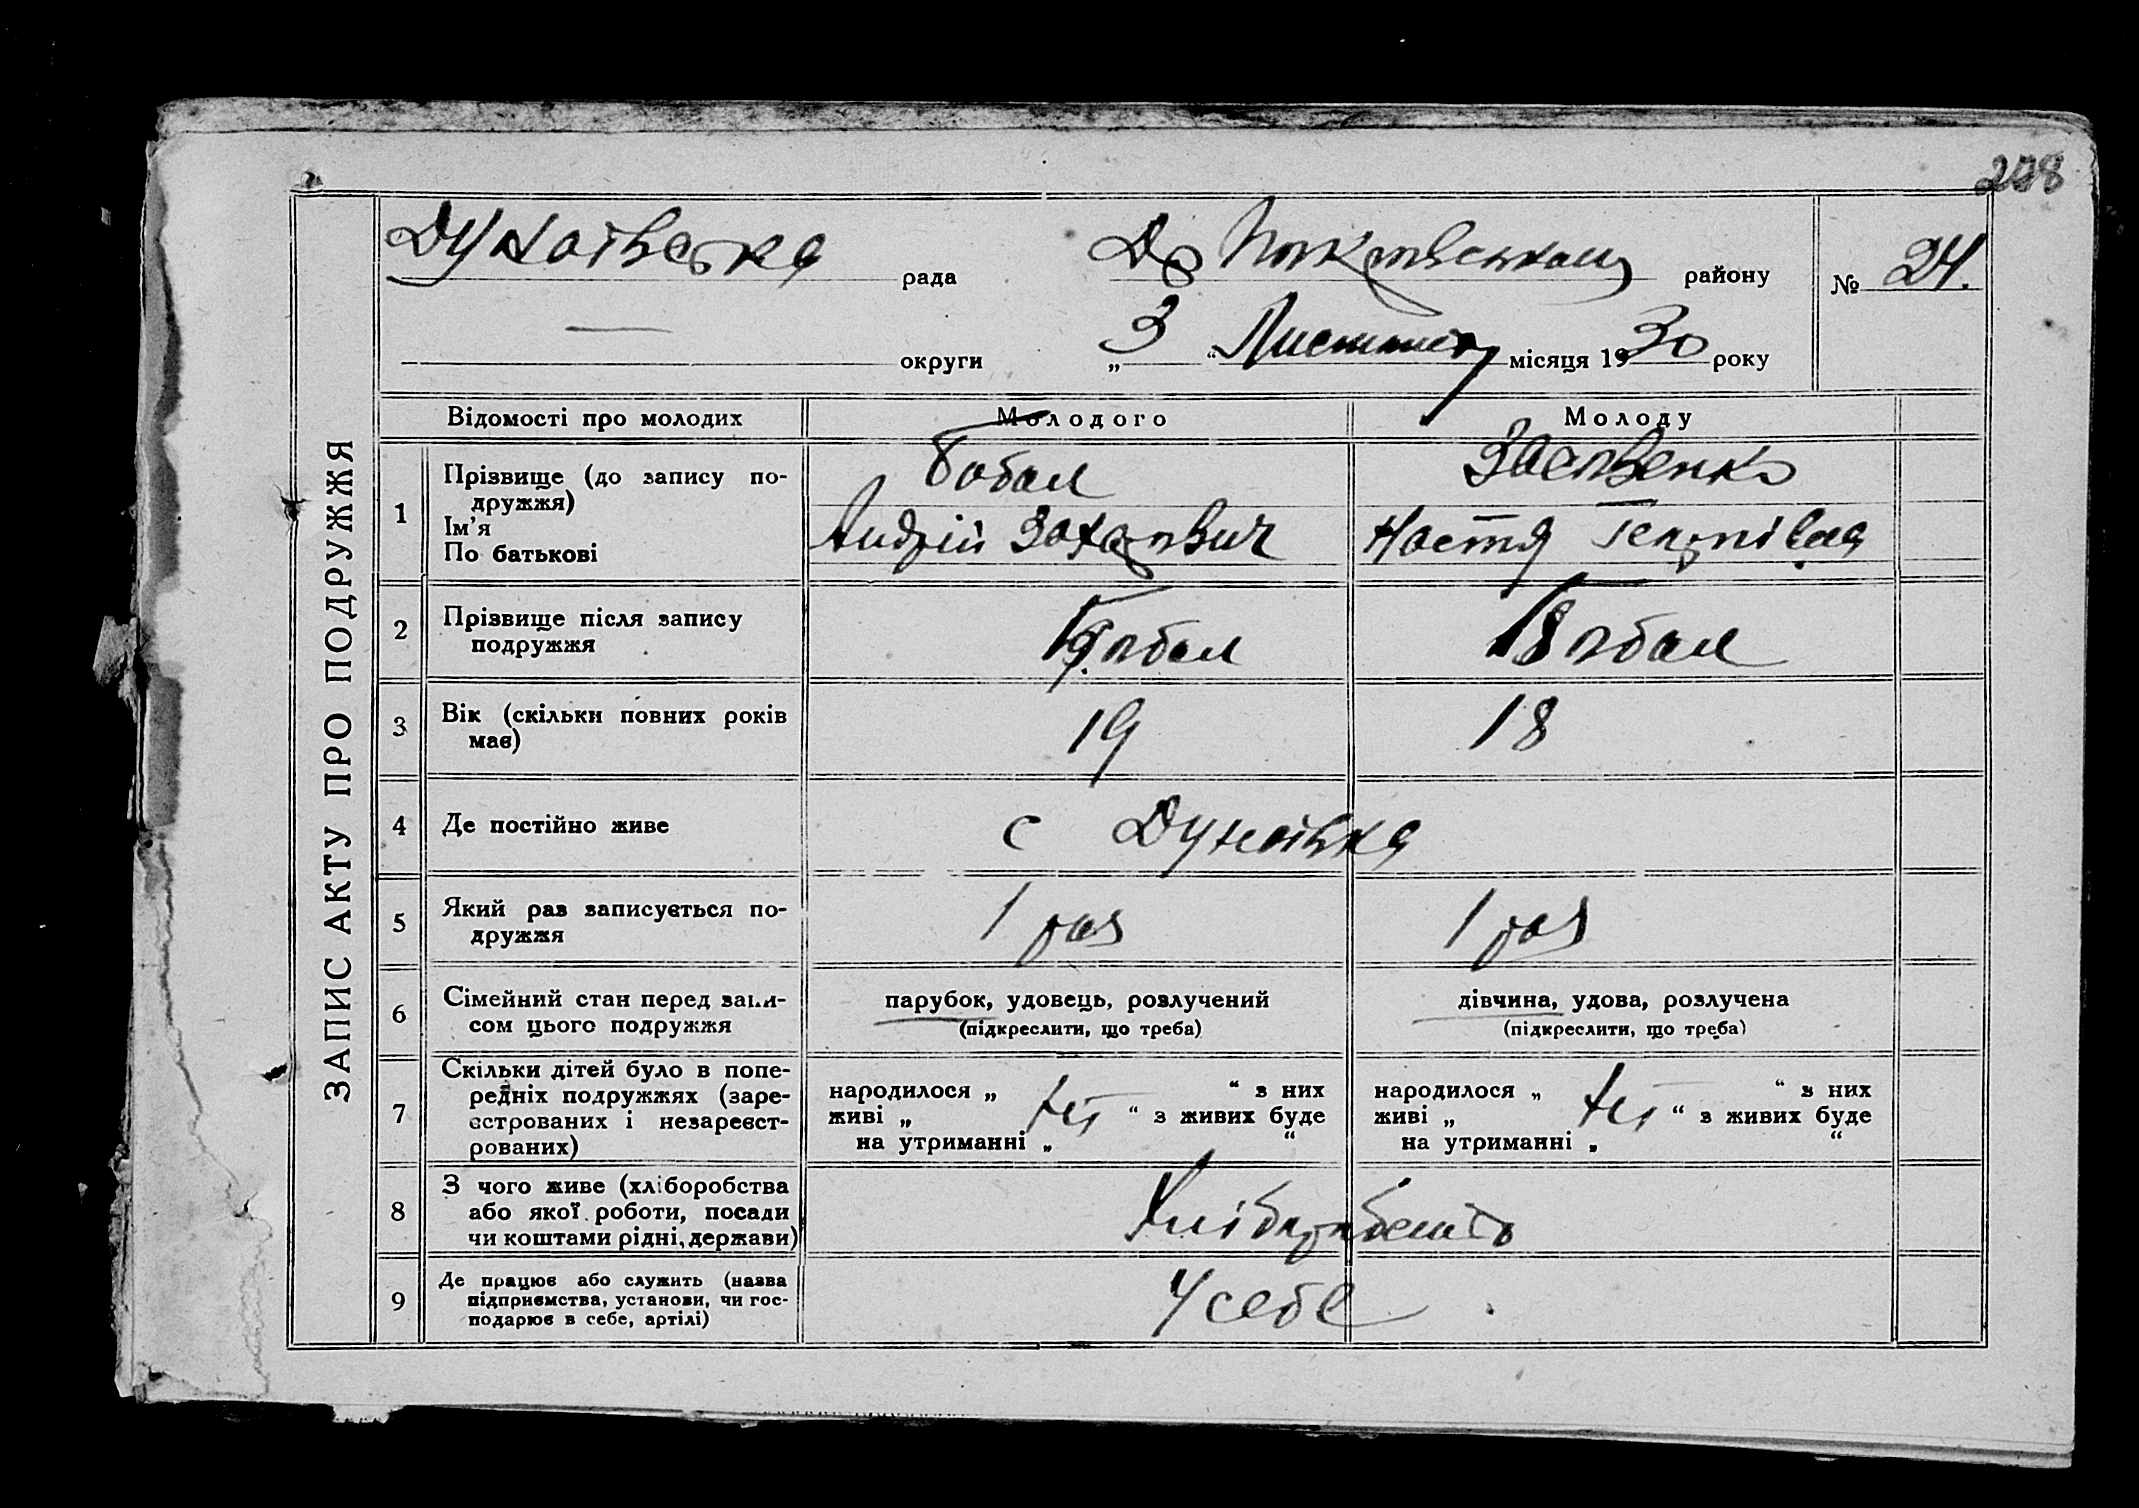 208
Дунаївська рада
Др Покровського району
№ 24.
округи
„ 3 “ Листопада місяця 1930 року
ЗАПИС АКТУ ПРО ПОДРУЖЖЯ
Відомості про молодих
Молодого
Молоду
1
Прізвище (до запису по-
дружжя)
Ім’я
По батькові
Бабал
Андрій Захарович
Настя
2
Прізвище після запису
подружжя
Бабал
Бабал
3
Вік (скільки повних років
має)
19
18
4
Де постійно живе
с Дунаївка
5
Який раз записується по-
дружжя
1 раз
1 раз
6
Сімейний стан перед запи-
сом цього подружжя
парубок, удовець, розлучений
(підкреслити, що треба)
дівчина, удова, розлучена
(підкреслити, що треба)
7
Скільки дітей було в попе-
редніх подружжях (заре-
єстрованих і незареєст-
рованих)
народилося „ “ з них
живі „ “ з живих буде
на утриманні „ “
народилося „ “ з них
живі „ “ з живих буде
на утриманні „ “
8
З чого живе (хліборобства
або якої роботи, посади
чи коштами рідні, держави)
9
Де працює або служить (назва
підприємства, установи, чи гос-
подарює в себе, артілі)
У себе